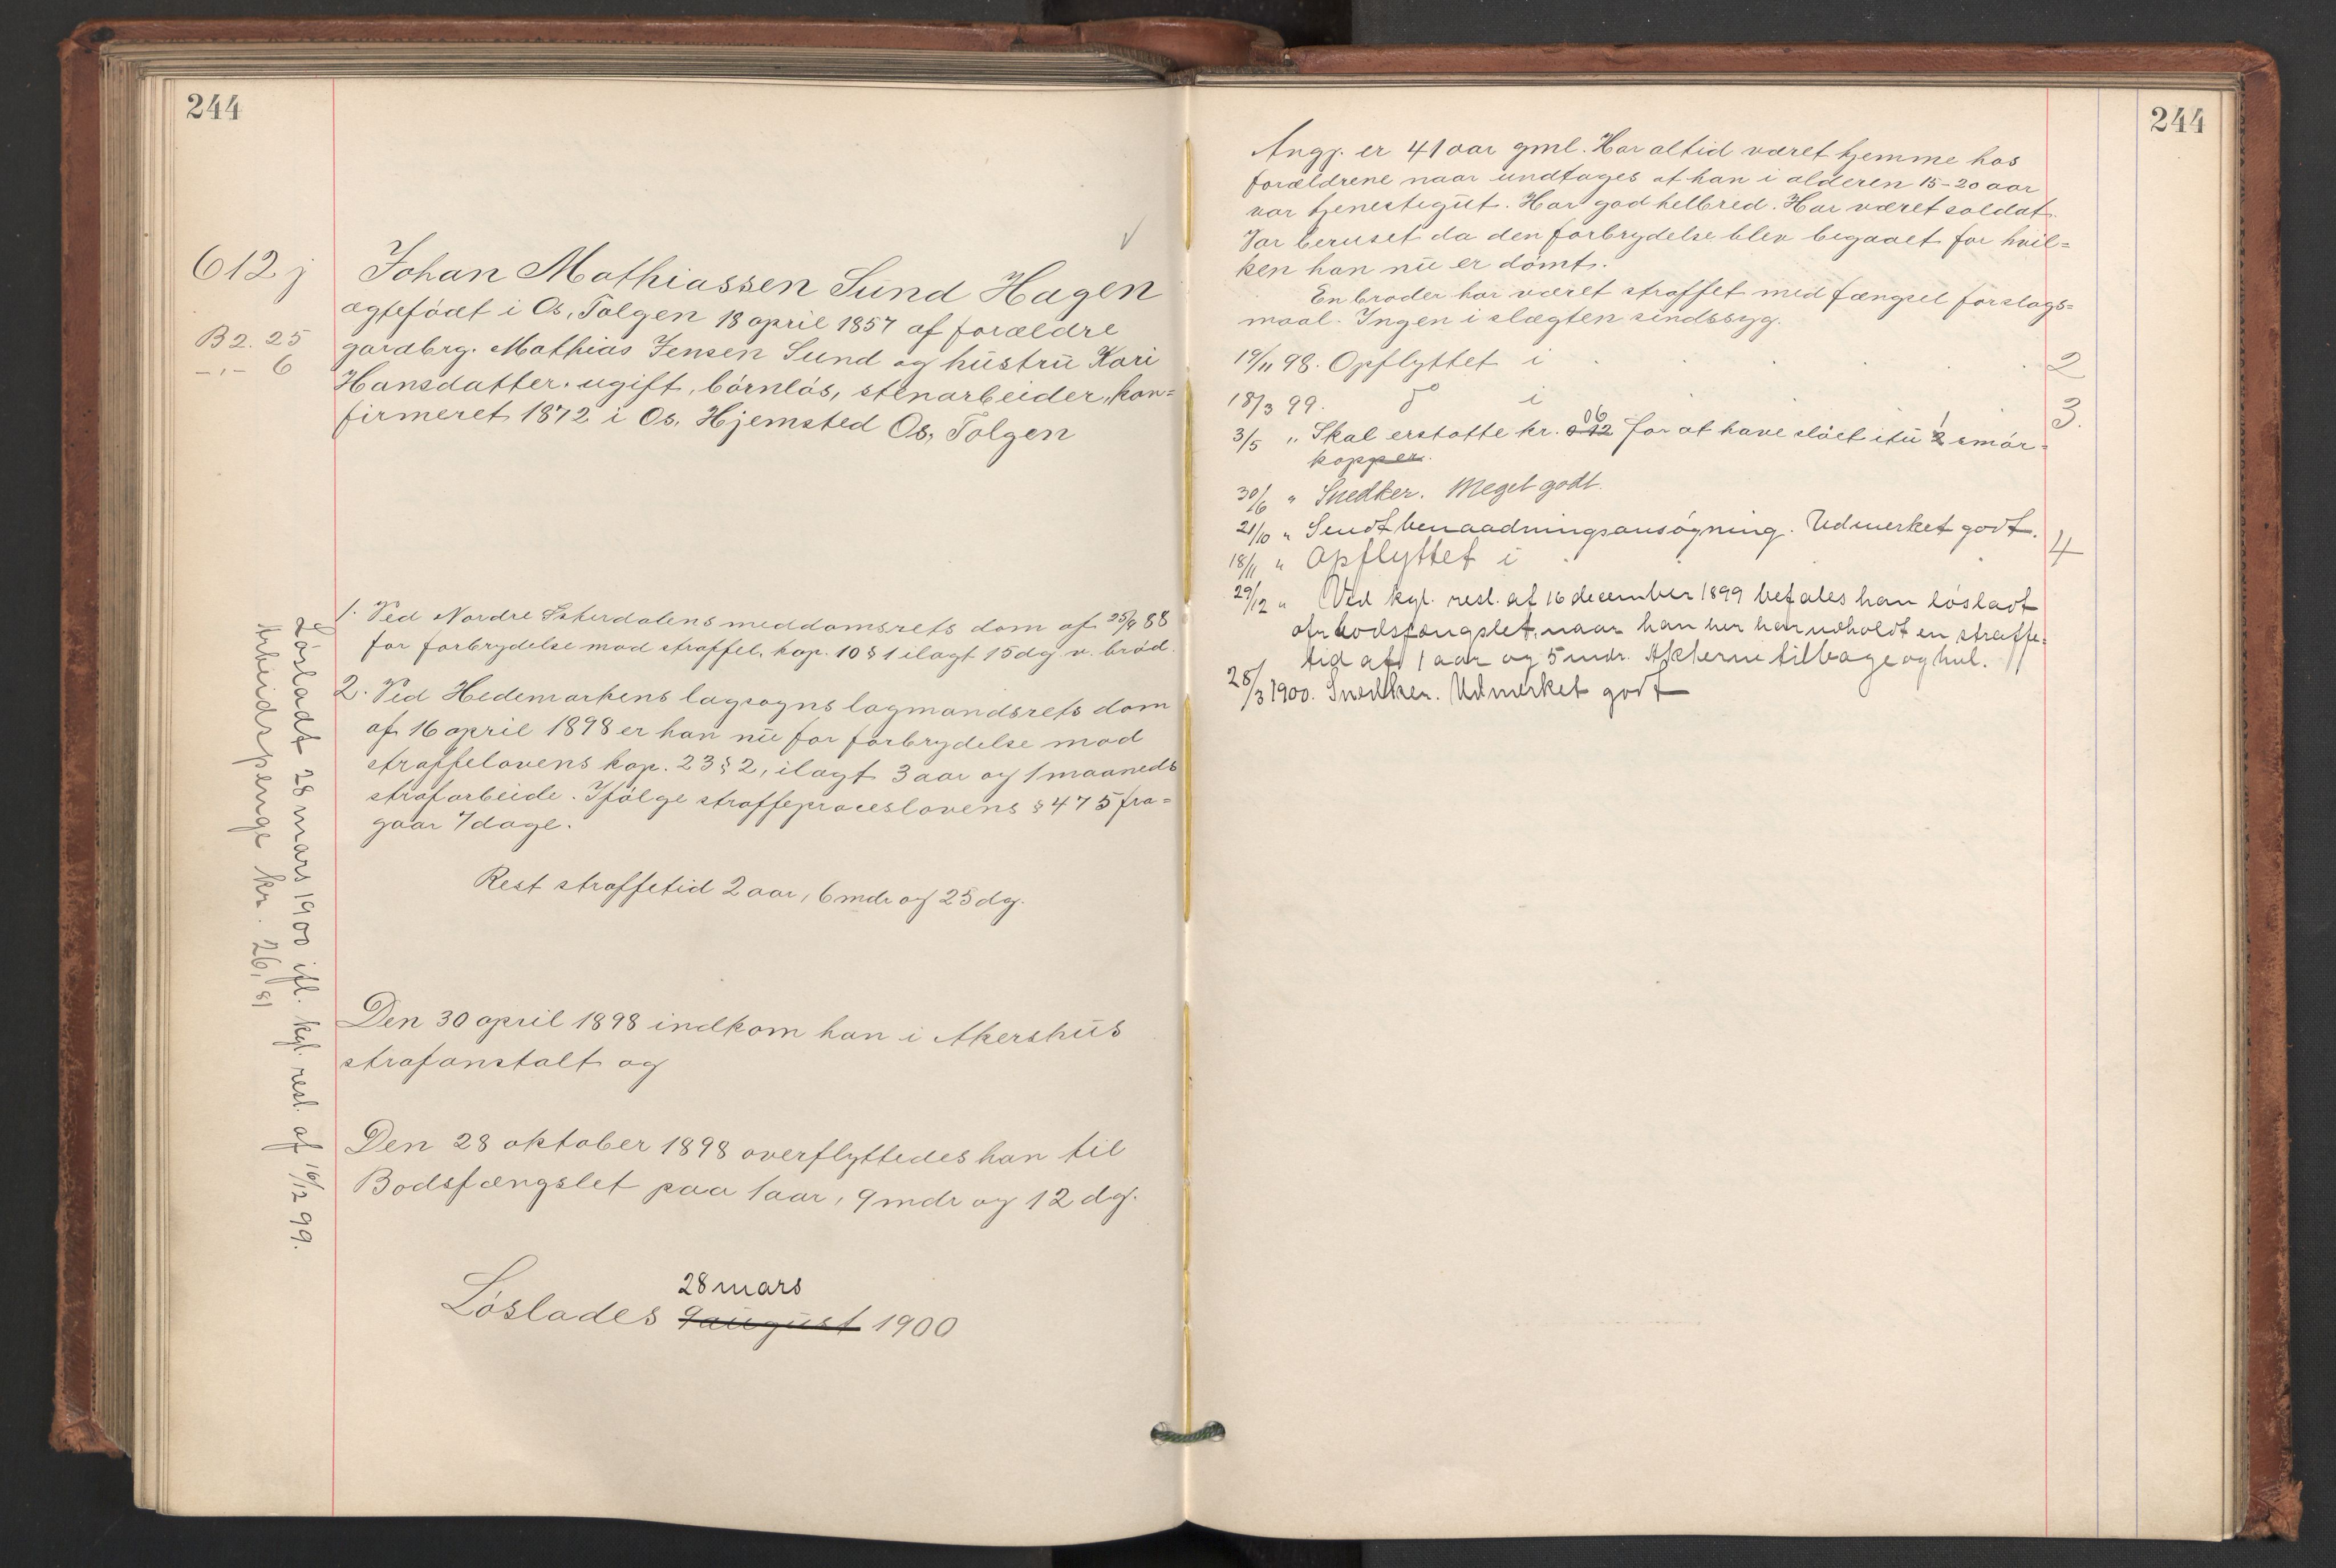 244
612 j
B 2. 25
–"– 6
Johan Mathiassen Sund Hagen
ægtefödt i Os, Tolgen 18 april 1857 af forældre
gardbrg. Mathias Jensen Sund og hustru Kari
Hansdatter. ugift, börnlös, stenarbeider, kon=
firmeret 1872 i Os, Hjemsted Os, Tolgen
1. Ved Nordre Østerdalens meddomsrets dom af 25/9 88
for forbrydelse mod straffel. kap. 10 § 1 ilagt 15 dg v. bröd.
2. Ved Hedemarkens lagsogns lagmandsrets dom
af 16 april 1898 er han nu for forbrydelse mod
straffelovens kap. 23 § 2, ilagt 3 aar og 1 maaneds
strafarbeide. Ifölge straffeproceslovens § 475 fra=
gaar 7 dage.
Rest straffetid 2 aar, 6 mdr og 25 dg.
Den 30 april 1898 indkom han i Akershus
strafanstalt og
Den 28 oktober 1898 overflyttedes han til
Bodsfængslet paa 1 aar, 9 mdr og 12 dg.
28 mars
Löslades 9 august 1900
Lösladt 28 mars 1900 ifl. kgl. resl. af 16/12 99.
Arbeidspenge kr. 26,81
244
Angj. er 41 aar gml. Har altid været hjemme hos
forældrene naar undtages at han i alderen 15–20 aar
var tjenestegut. Har god helbred. Har været soldat.
Var beruset da den forbrydelse blev begaaet for hvil=
ken han nu er dömt.
En broder har været straffet med fængsel for slags=
maal. Ingen i slægten sindssyg.
19/11 98. Opflyttet i 2
18/3 99. do i 3.
3/5 " Skal erstatte kr. 0 12 06 for at have slået itu 2 1 smör=
kopper.
30/6 " Snedker. Meget godt.
21/10 " Sendt benaadningsansögning. Udmerket godt.
18/11 " Opflyttet i 4
29/12 " Ved kgl. resl. af 16 december 1899 befales han lösladt
af bodsfængslet, naar han her har udholdt en straffe=
tid af 1 aar og 5 mdr. Akterne tilbage og hul.
28/3 1900. Snedker. Udmerket godt